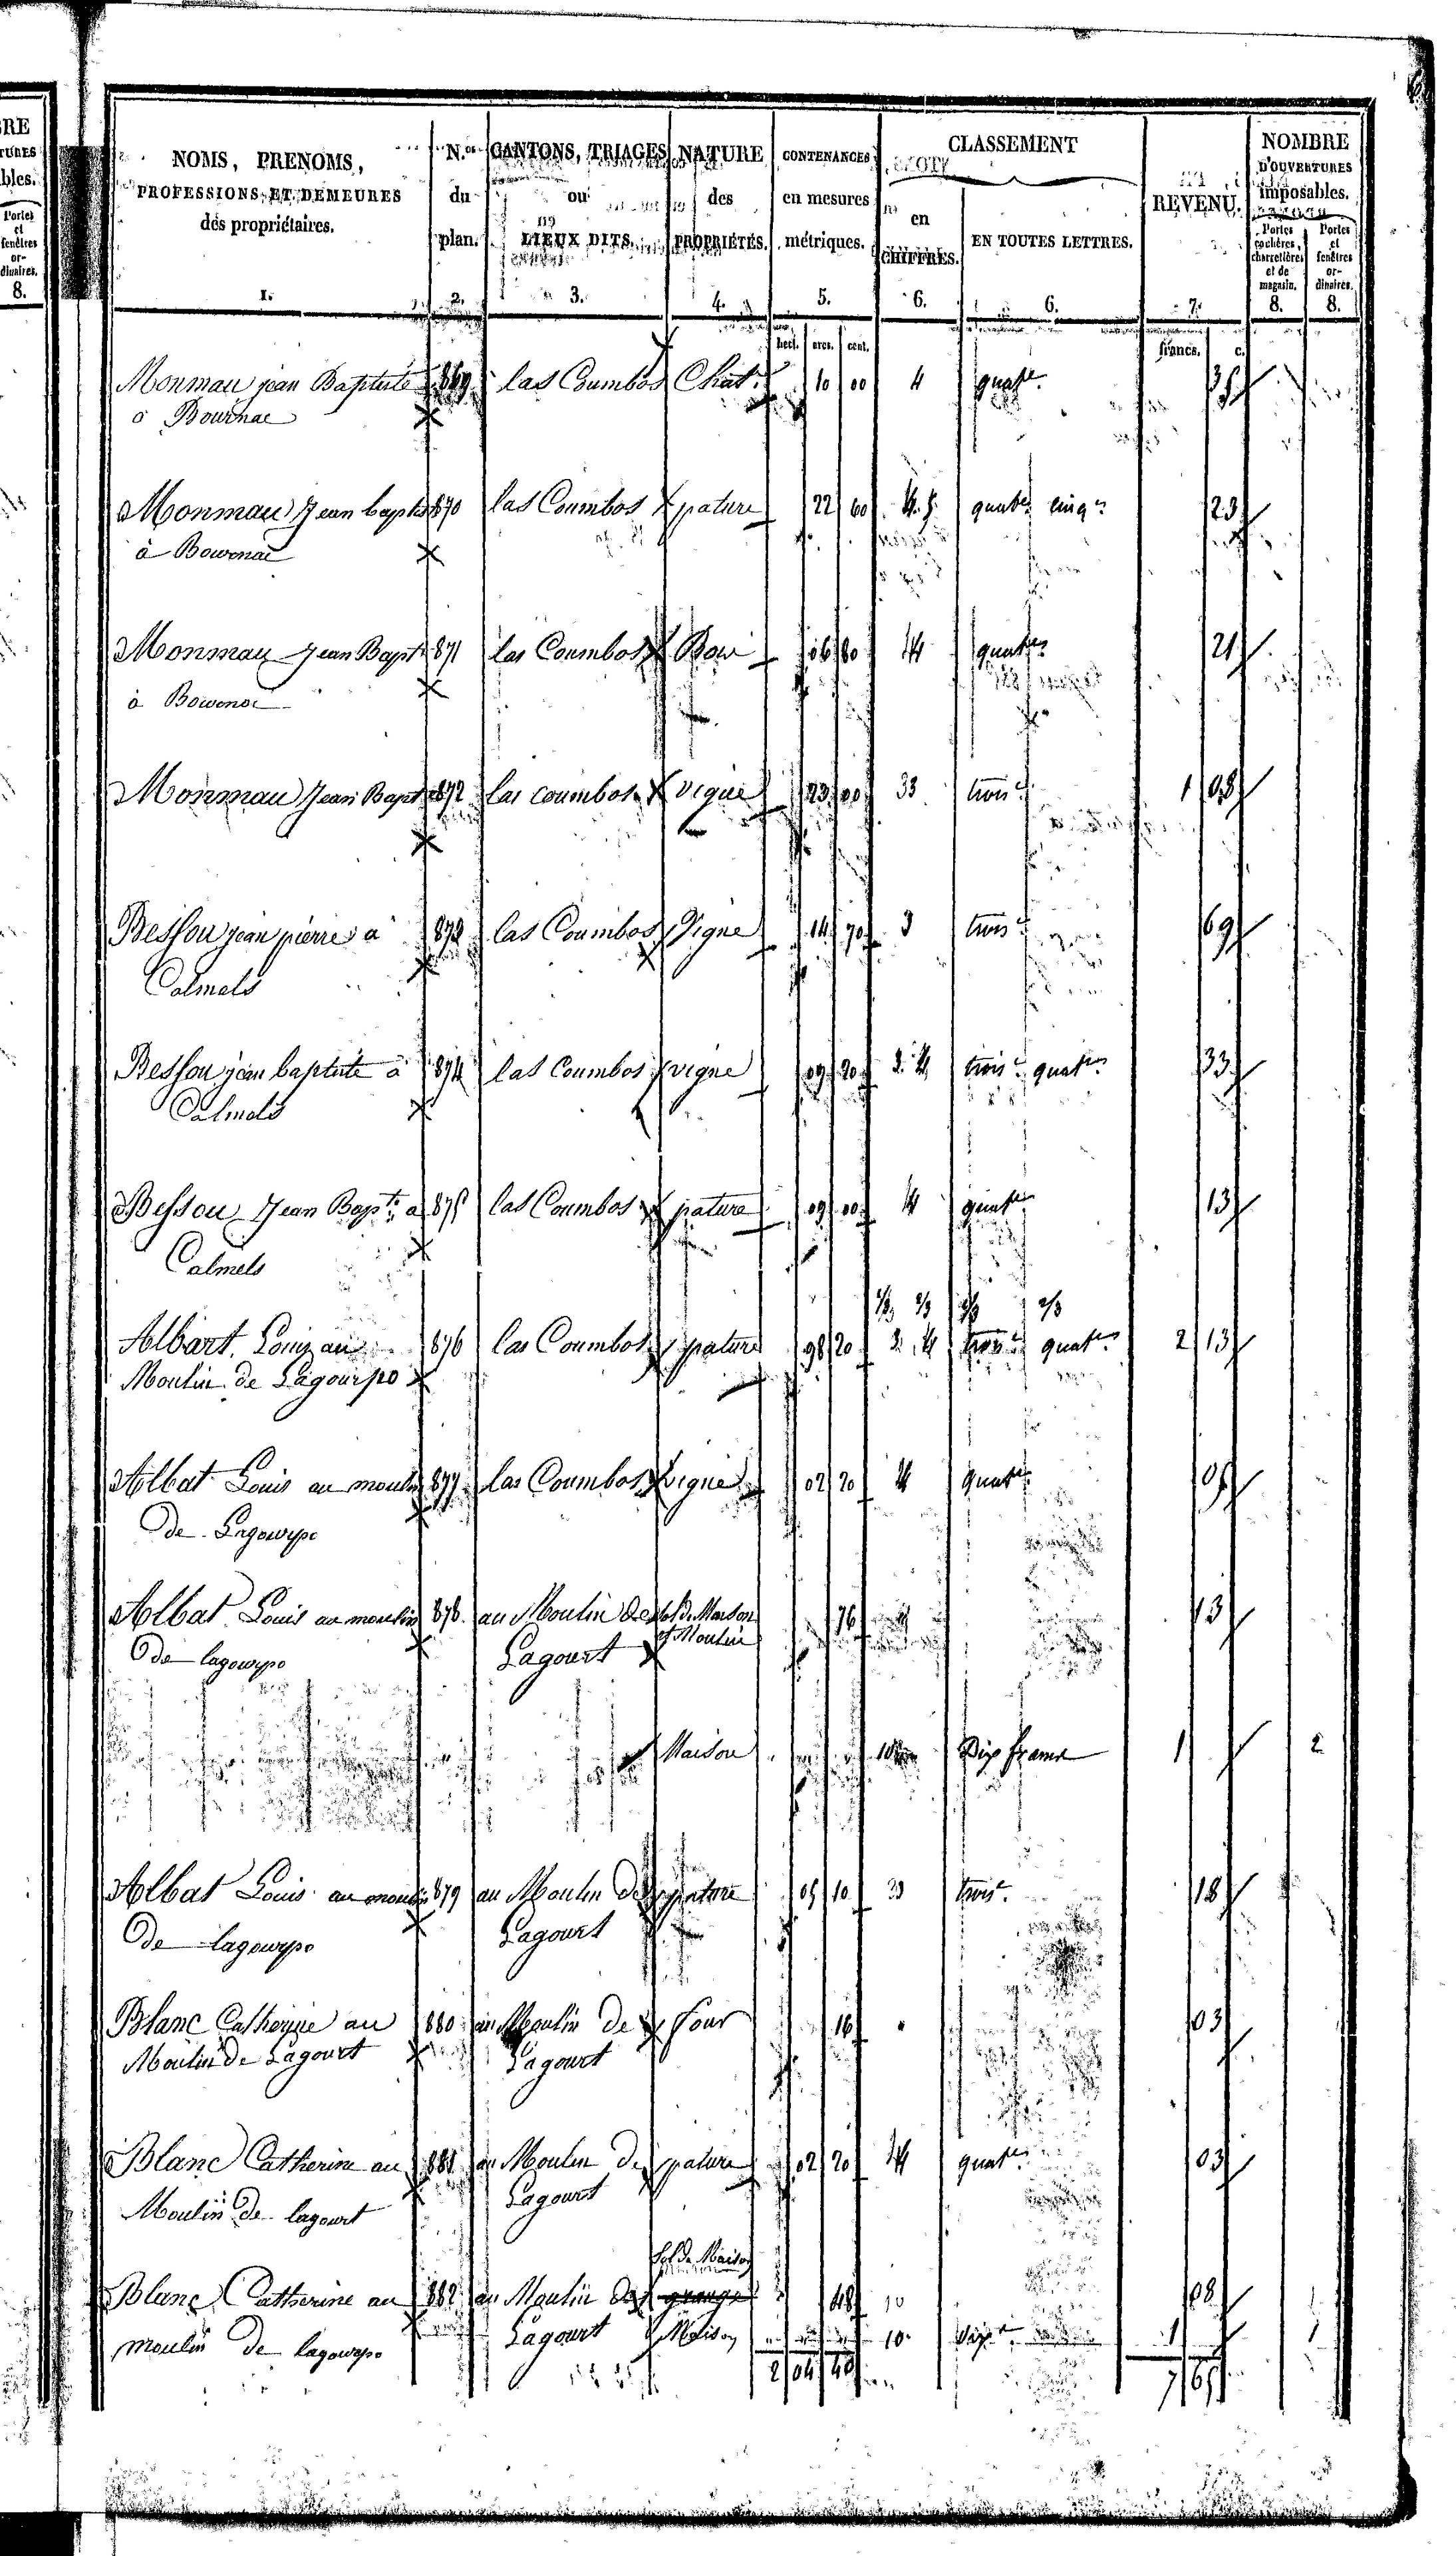 NOMS, PRENOMS,
PROFESSIONS ET DEMEURES
des propriétaires.
1.
N.os
du
plan.
2.
CANTONS, TRIAGES
ou
LIEUX DITS.
3.
NATURE
des
PROPRIÉTÉS.
4.
CONTENANCES
en mesures
métriques.
5.
CLASSEMENT
en
CHIFFRES.
6.
EN TOUTES LETTRES.
6.
REVENU.
7.
NOMBRE
D'OUVERTURES
imposables.
Portes cochères, charretières et de magasin.
8.
Portes et fenêtres ordinaires.
8.
hect. ares. cent. francs. c.
Monmau jean Baptiste 869 las Coumbos Chat. 10 00 4 quat.e 35
à Bournac
Monmau Jean bapte 870 las Coumbos pature 22 60 4. 5. quat.e cinq.e 23
à Bournac
Monmau Jean Bapt 871 las Coumbos Bois 06 80 4 quat.e 21
à Bournac
Monmau Jean Bapt 872 las coumbos vigne 23 00 3 trois.e 1 08
Bessou jean pierre à 873 las Coumbos Vigne 14 70 3 trois.e 69
Calmels
Bessou jean baptiste à 874 las Coumbos vigne 09 20 3. 4 trois.e quat.e 33
Calmels
Bessou Jean Bapt.e a 875 las Coumbos pature 09 00 4 quat.e 13
Calmels
1/3 2/3 1/3 2/3
Albart Louis au 876 las Coumbos pature 98 20 3. 4 trois.e quat.e 2 13
Moulin de Lagourpo
Albat Louis au moulin 877 las Coumbos vigne 02 20 4 quat.e 05
de Lagourpo
Albat Louis au moulin 878 au Moulin de sol de Maison 76 13
de lagourpo Lagourt et Moulin
Maison 10 Dix frame 1 2
Albat Louis au moulin 879 au Moulin de pature 05 10 3 trois.e 18
de lagourpo Lagourt
Blanc Catherine au 880 au Moulin de four 16 03
Moulin de Lagourt Lagourt
Blanc Catherine au 881 au Moulin de pature 02 20 4 quat.e 03
Moulin de lagourt Lagourt
Sol de Maison
Blanc Catherine au 882 au Moulin de grange 48 10 08
moulin de lagourpo Lagourt Maison 10. dix.e 1 1
2 04 40 7 65